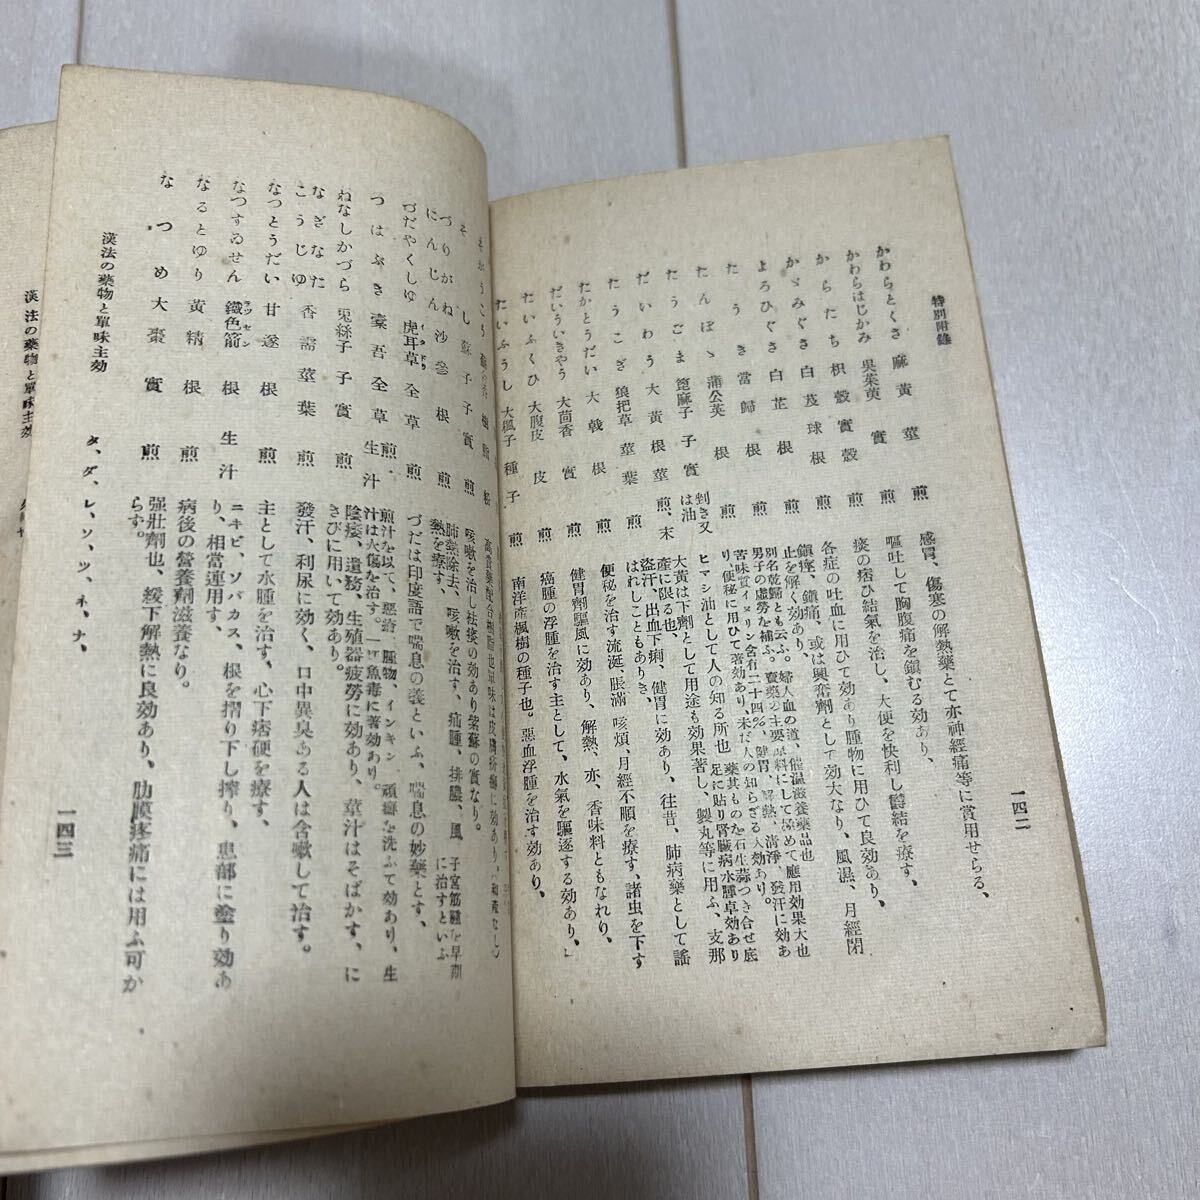 特別附錄
一四二
かわらとくさ 麻黃 莖 煎 感冒、傷塞の解熱藥とて亦神經痛等に賞用せらる、
かわらはじかみ 吳茱萸 實 煎 嘔吐して胸腹痛を鎭むる効あり、
からたち 枳殼 實殼 煎 痰の痞ひ結氣を治し、大便を快利し欝結を療す、
かゞみぐさ 白芨 球根 煎 各症の吐血に用ひて効あり腫物に用ひて良効あり、
よろひぐさ 白芷 根 煎 鎭痙、鎭痛、或は興奮劑として効大なり、風濕、月經閉
止を解く効あり、
たうき 當歸 根 煎 別名乾歸とも云ふ。婦人血の道、催溫滋養藥品也
男子の虛勞を補ふ。賣藥の主要原料にして極めて應用効果大也
たんぽゝ 蒲公英 煎 苦味質イヌリン含有二十四%、健胃、解熱、淸淨、發汗に効あ
り、便秘に用ひて著効あり、未だ人の知らざる人効あり。
たうごま 箆麻子 子實 剝き又は油 ヒマシ油として人の知る所也 藥其ものを石生蒜つき合せ底
足に貼り腎臟病水腫卓効あり
だいわう 大黃 根莖 煎、末 大黃は下劑として用途も効果著し、製丸等に用ふ、支那
產に限る也、
たうこぎ 狼把草 莖葉 煎 盜汗、出血下痢、健胃に効あり、往昔、肺病藥として謠
はれしこともありき、
たかとうだい 大戟 根 煎 便秘を治す流涎、脹滿 咳煩、月經不順を療す、諸虫を下す
だいういきやう 大茴香 實 煎 健胃劑驅風に効あり、解熱、亦、香味料ともなれり、
たいふくひ 大腹皮 皮 煎 癌腫の浮腫を治す主として、水氣を驅逐する効あり、
たいふうし 大楓子 種子 煎 南洋產楓樹の種子也。惡血浮腫を治す効あり、
そし 蘇子 子實 煎 咳嗽を治し祛痰の効あり紫蘇の實なり。
つりがねにんじん 沙參 根 煎 肺熱除去、咳嗽を治す、疝腫、排膿、風熱を療す、
子宮筋腫を早期に治すといふ
づだやくしゆ 虎耳草 全草 煎 づだは印度語で喘息の義といふ、喘息の妙藥とす、
つはぶき 橐吾 全草 煎、生汁 煎汁を以て、惡瘡、腫物、インキン、頑癬を洗ふて効あり、生
汁は火傷を治す。魚毒に著効あり。
ねなしかづら 兎絲子 子實 煎 陰痿、遺務、生殖器疲勞に効あり、莖汁はそばかす、に
きびに用いて効あり。
なぎなたこうじゆ 香薷 莖葉 煎 發汗、利尿に効く、口中異臭ある人は含嗽して治す。
なつとうだい 甘遂 根 煎 主として水腫を治す、心下痞硬を療す、
なつすゐせん 鐵色箭 根 生汁 ニキビ、ソバカス、根を摺り下し搾り、患部に塗り効あ
り、相當運用す、
なるとゆり 黃精 根 煎 病後の營養劑滋養なり。
なつめ 大棗 實 煎 强壯劑也、緩下解熱に良効あり、肋膜疼痛には用ふ可か
らす。
漢法の藥物と單味主効
タ、ダ、レ、ソ、ツ、ネ、ナ、
一四三
漢法の藥物と單味主効